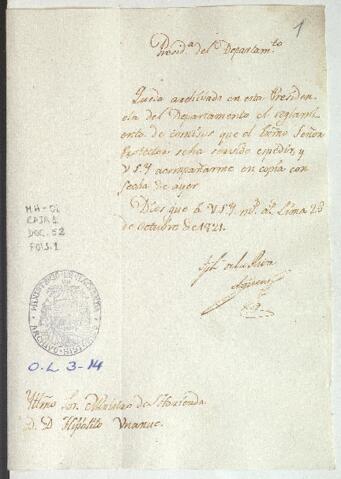 1
Presid.ª del Departam.to
Queda archivado en esta Presiden-
cia del Departamento el reglami-
ento de comisos que el Exmo Señor
Protector se ha servido expedir, y
V.S.Y. acompañarme en copia con
fecha de ayer
Dios gue á V.S.Y. m.s a.s Lima 23
de Octubre de 1821.
de la Riva
Aguero
MH-OL
CAJA 1
DOC. 52
FOLS. 1
O.L. 3-14
Yltmo Sor. Ministro de Hacienda
D. D. Hipolito Unanue.